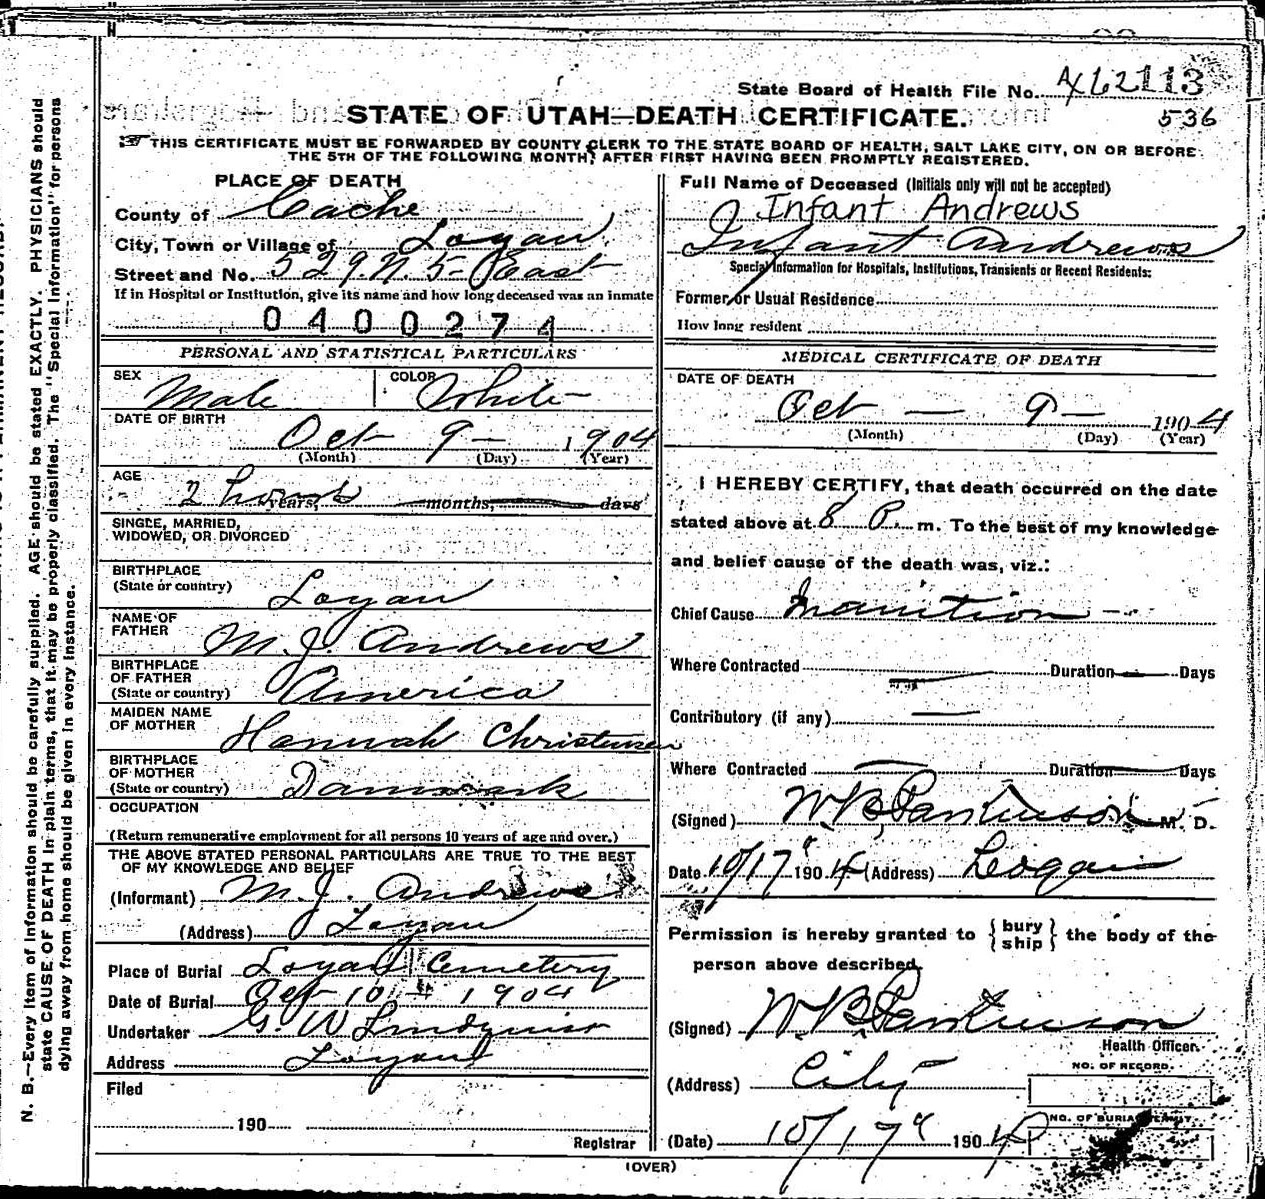 State Board of Health File No. 
536
STATE OF UTAH—DEATH CERTIFICATE.
THIS CERTIFICATE MUST BE FORWARDED BY COUNTY CLERK TO THE STATE BOARD OF HEALTH, SALT LAKE CITY, ON OR BEFORE
THE 5TH OF THE FOLLOWING MONTH, AFTER FIRST HAVING BEEN PROMPTLY REGISTERED.
PLACE OF DEATH
County of Cache
City, Town or Village of Logan
Street and No. 529. N. 5 East
If in Hospital or Institution, give its name and how long deceased was an inmate
0400274
PERSONAL AND STATISTICAL PARTICULARS
SEX Male COLOR White
DATE OF BIRTH
Oct 9 — 1904
(Month) (Day) (Year)
AGE
2 hours years, months, days
SINGLE, MARRIED,
WIDOWED, OR DIVORCED
BIRTHPLACE
(State or country) Logan
NAME OF
FATHER M. J. Andrews
BIRTHPLACE
OF FATHER
(State or country) America
MAIDEN NAME
OF MOTHER Hannah Christensen
BIRTHPLACE
OF MOTHER
(State or country) Danmark
OCCUPATION
(Return remunerative employment for all persons 10 years of age and over.)
THE ABOVE STATED PERSONAL PARTICULARS ARE TRUE TO THE BEST
OF MY KNOWLEDGE AND BELIEF
(Informant) M. J. Andrews
(Address) Logan
Place of Burial Logan Cemetery
Date of Burial Oct 10th 1904
Undertaker G. W Lindquist
Address Logan
Filed
190
Registrar
Full Name of Deceased (Initials only will not be accepted)
Infant Andrews
Infant Andrews
Special Information for Hospitals, Institutions, Transients or Recent Residents:
Former or Usual Residence
How long resident
MEDICAL CERTIFICATE OF DEATH
DATE OF DEATH
Oct — 9 — 1904
(Month) (Day) (Year)
I HEREBY CERTIFY, that death occurred on the date
stated above at 8 P. m. To the best of my knowledge
and belief cause of the death was, viz.:
Chief Cause Inanition —
Where Contracted — Duration — Days
Contributory (if any) —
Where Contracted — Duration — Days
(Signed) W. B. Parkinson M. D.
Date 10/17 1904 (Address) Logan
Permission is hereby granted to {bury ship} the body of the
person above described.
(Signed) W. B. Parkinson
Health Officer.
(Address) City
NO. OF RECORD.
NO. OF BURIAL PERMIT.
(Date) 10/17 1904
(OVER)
N. B.—Every item of information should be carefully supplied. AGE should be stated EXACTLY. PHYSICIANS should
state CAUSE OF DEATH in plain terms, that it may be properly classified. The "Special Information" for persons
dying away from home should be given in every instance.